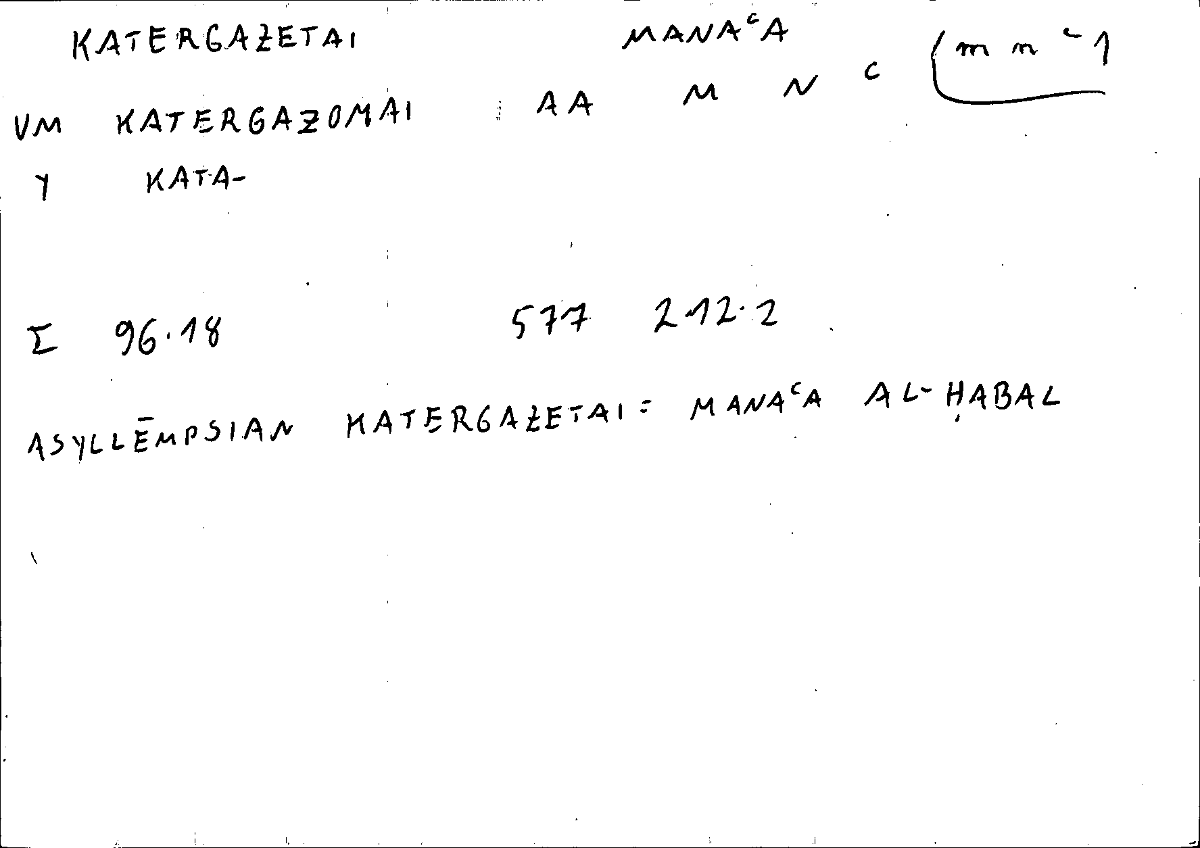 KATERGAZETAI MANAᶜA
VM KATERGAZOMAI : AA M N ᶜ (m n ᶜ 1
Y KATA-
Σ 96.18 577 212.2
ASYLLĒMPSIAN KATERGAZETAI = MANAᶜA AL-ḤABAL